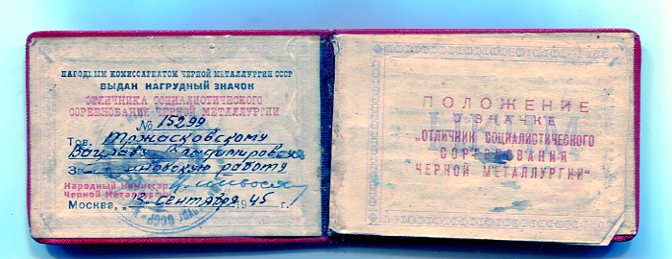 НАРОДНЫМ КОМИССАРИАТОМ ЧЕРНОЙ МЕТАЛЛУРГИИ СССР
ВЫДАН НАГРУДНЫЙ ЗНАЧОК
ОТЛИЧНИКА СОЦИАЛИСТИЧЕСКОГО
СОРЕВНОВАНИЯ ЧЕРНОЙ МЕТАЛЛУРГИИ
№ 15299
Тов. Тржасковскому
За работу
Народный Комиссар
Черной Металлургии
Москва, " Сентября 1945 г.
ПОЛОЖЕНИЕ
О ЗНАЧКЕ
„ОТЛИЧНИК СОЦИАЛИСТИЧЕСКОГО
СОРЕВНОВАНИЯ
ЧЕРНОЙ МЕТАЛЛУРГИИ"